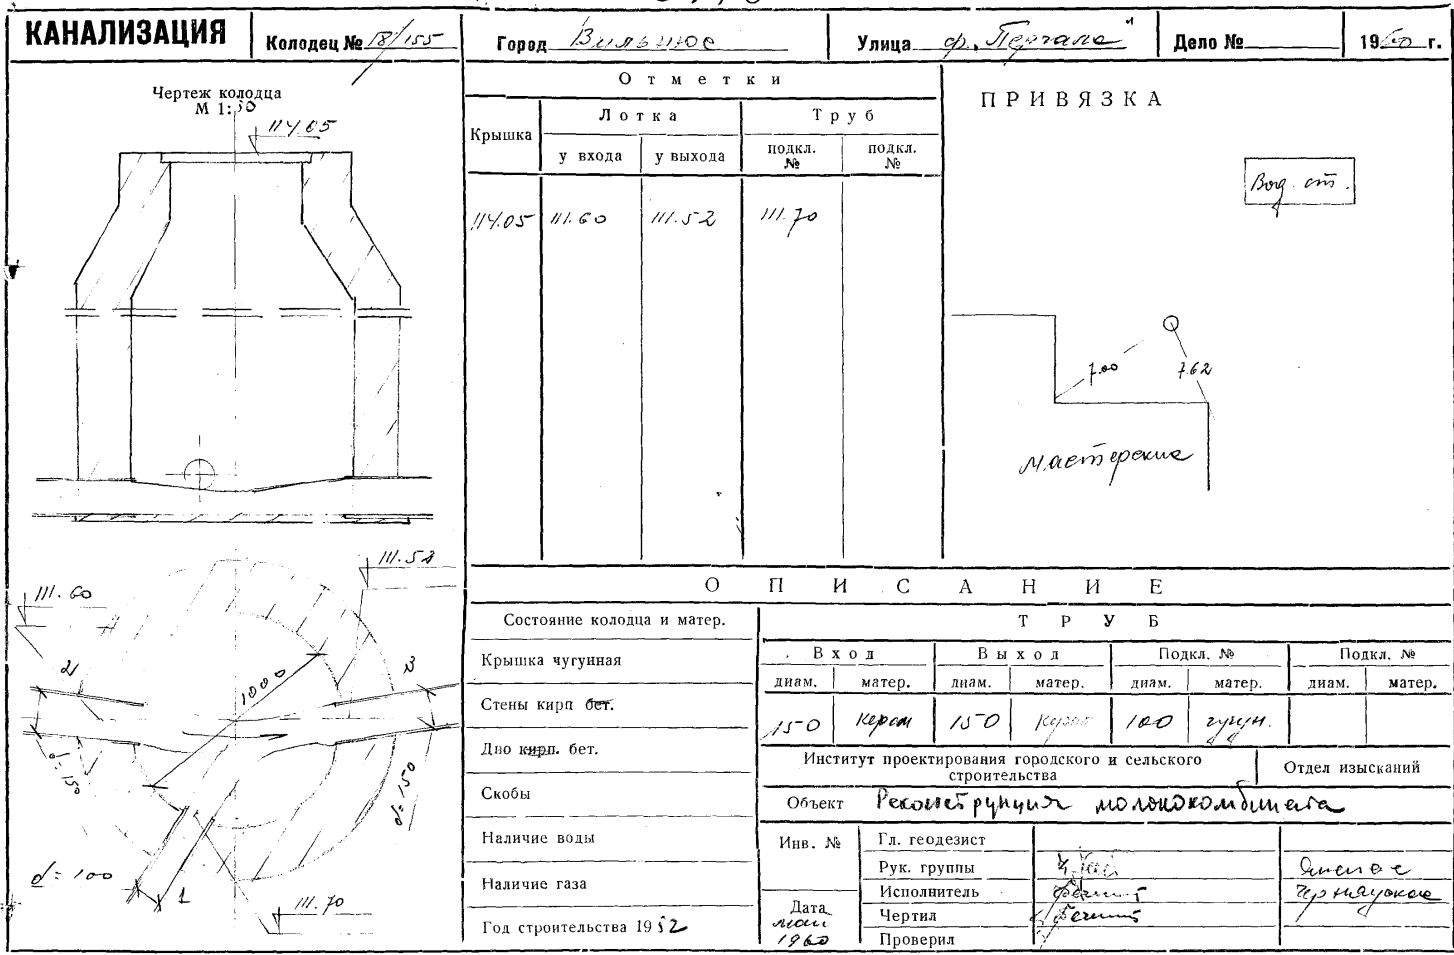 КАНАЛИЗАЦИЯ Колодец № 18/155 Город Вильнюс Улица ф. „Пергале" Дело № 1960 г.
Чертеж колодца
М 1:50
114.05
111.52
111.60
2
3
1000
d=150
d=150
d=100
1
111.70
Отметки
Крышка Лотка Труб
у входа у выхода подкл. № подкл. №
114.05 111.60 111.52 111.70
ПРИВЯЗКА
Вод. ст.
7.00 7.62
мастерские
ОПИСАНИЕ
Состояние колодца и матер.
Крышка чугунная
Стены кирп бет.
Дно кирп. бет.
Скобы
Наличие воды
Наличие газа
Год строительства 1952
ТРУБ
Вход Выход Подкл. № Подкл. №
диам. матер. диам. матер. диам. матер. диам. матер.
150 керам 150 керам 100 чугун.
Институт проектирования городского и сельского
строительства
Отдел изысканий
Объект Реконструкция молококомбината
Инв. №
Гл. геодезист
Рук. группы
Исполнитель
Чертил
Проверил
Дата
май
1960